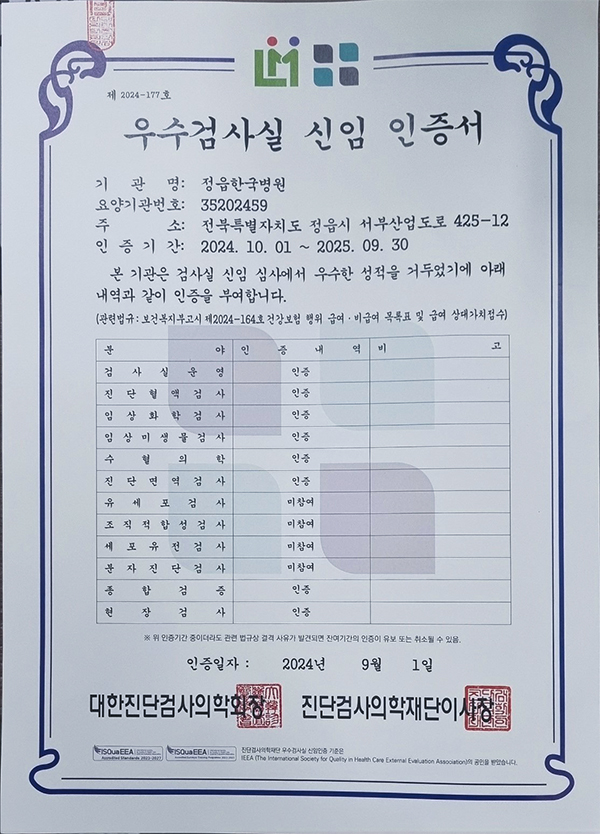 제 2024-177호
우수검사실 신임 인증서
기 관 명: 정읍한국병원
요양기관번호: 35202459
주 소: 전북특별자치도 정읍시 서부산업도로 425-12
인 증 기 간: 2024. 10. 01 ~ 2025. 09. 30
본 기관은 검사실 신임 심사에서 우수한 성적을 거두었기에 아래
내역과 같이 인증을 부여합니다.
(관련법규: 보건복지부고시 제2024-164호 건강보험 행위 급여·비급여 목록표 및 급여 상대가치점수)
분 야 인 증 내 역 비 고
검 사 실 운 영 인증
진 단 혈 액 검 사 인증
임 상 화 학 검 사 인증
임 상 미 생 물 검 사 인증
수 혈 의 학 인증
진 단 면 역 검 사 인증
유 세 포 검 사 미참여
조 직 적 합 성 검 사 미참여
세 포 유 전 검 사 미참여
분 자 진 단 검 사 미참여
종 합 검 증 인증
현 장 검 사 인증
※ 위 인증기간 중이더라도 관련 법규상 결격 사유가 발견되면 잔여기간의 인증이 유보 또는 취소될 수 있음.
인증일자 : 2024년 9월 1일
대한진단검사의학회장 진단검사의학재단이사장
ISQuaEEA ISQuaEEA 진단검사의학재단 우수검사실 신임인증 기준은
IEEA (The International Society for Quality in Health Care External Evaluation Association)의 공인을 받았습니다.